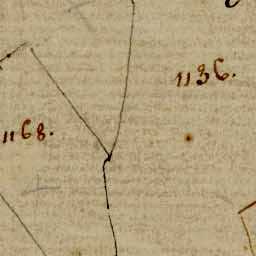 1136.
1168.